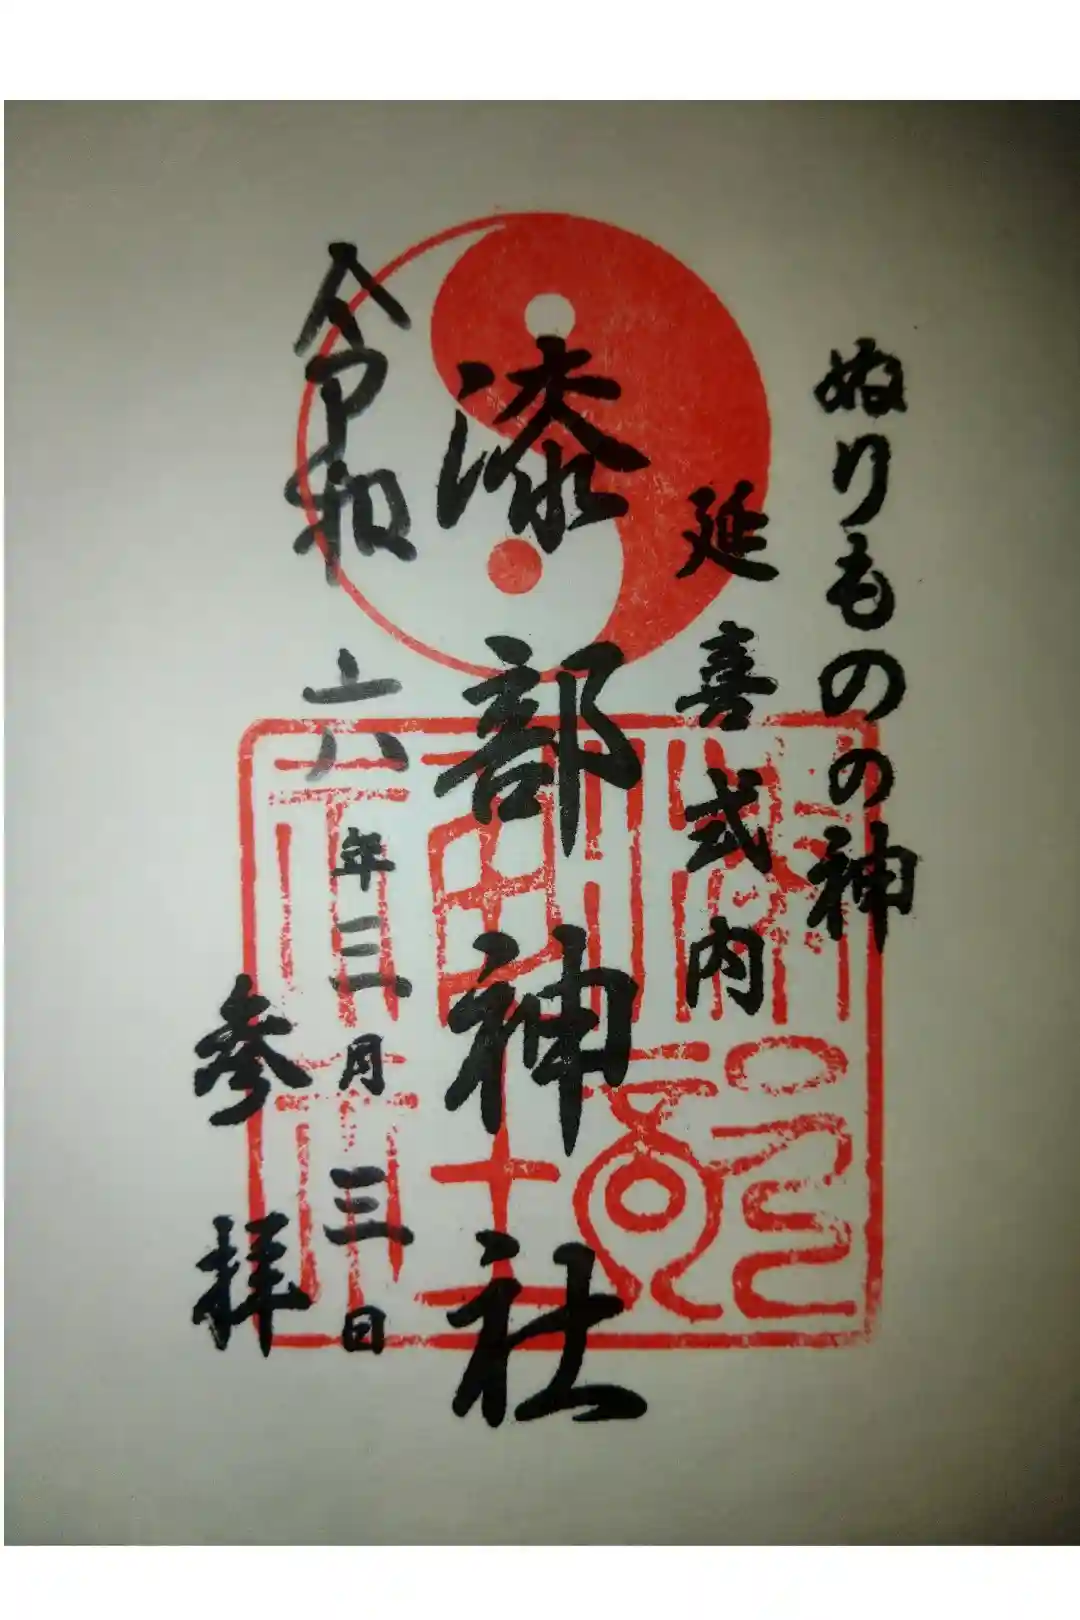 ぬりものの神
延喜式内
漆部神社
令和六年三月三日
参拝